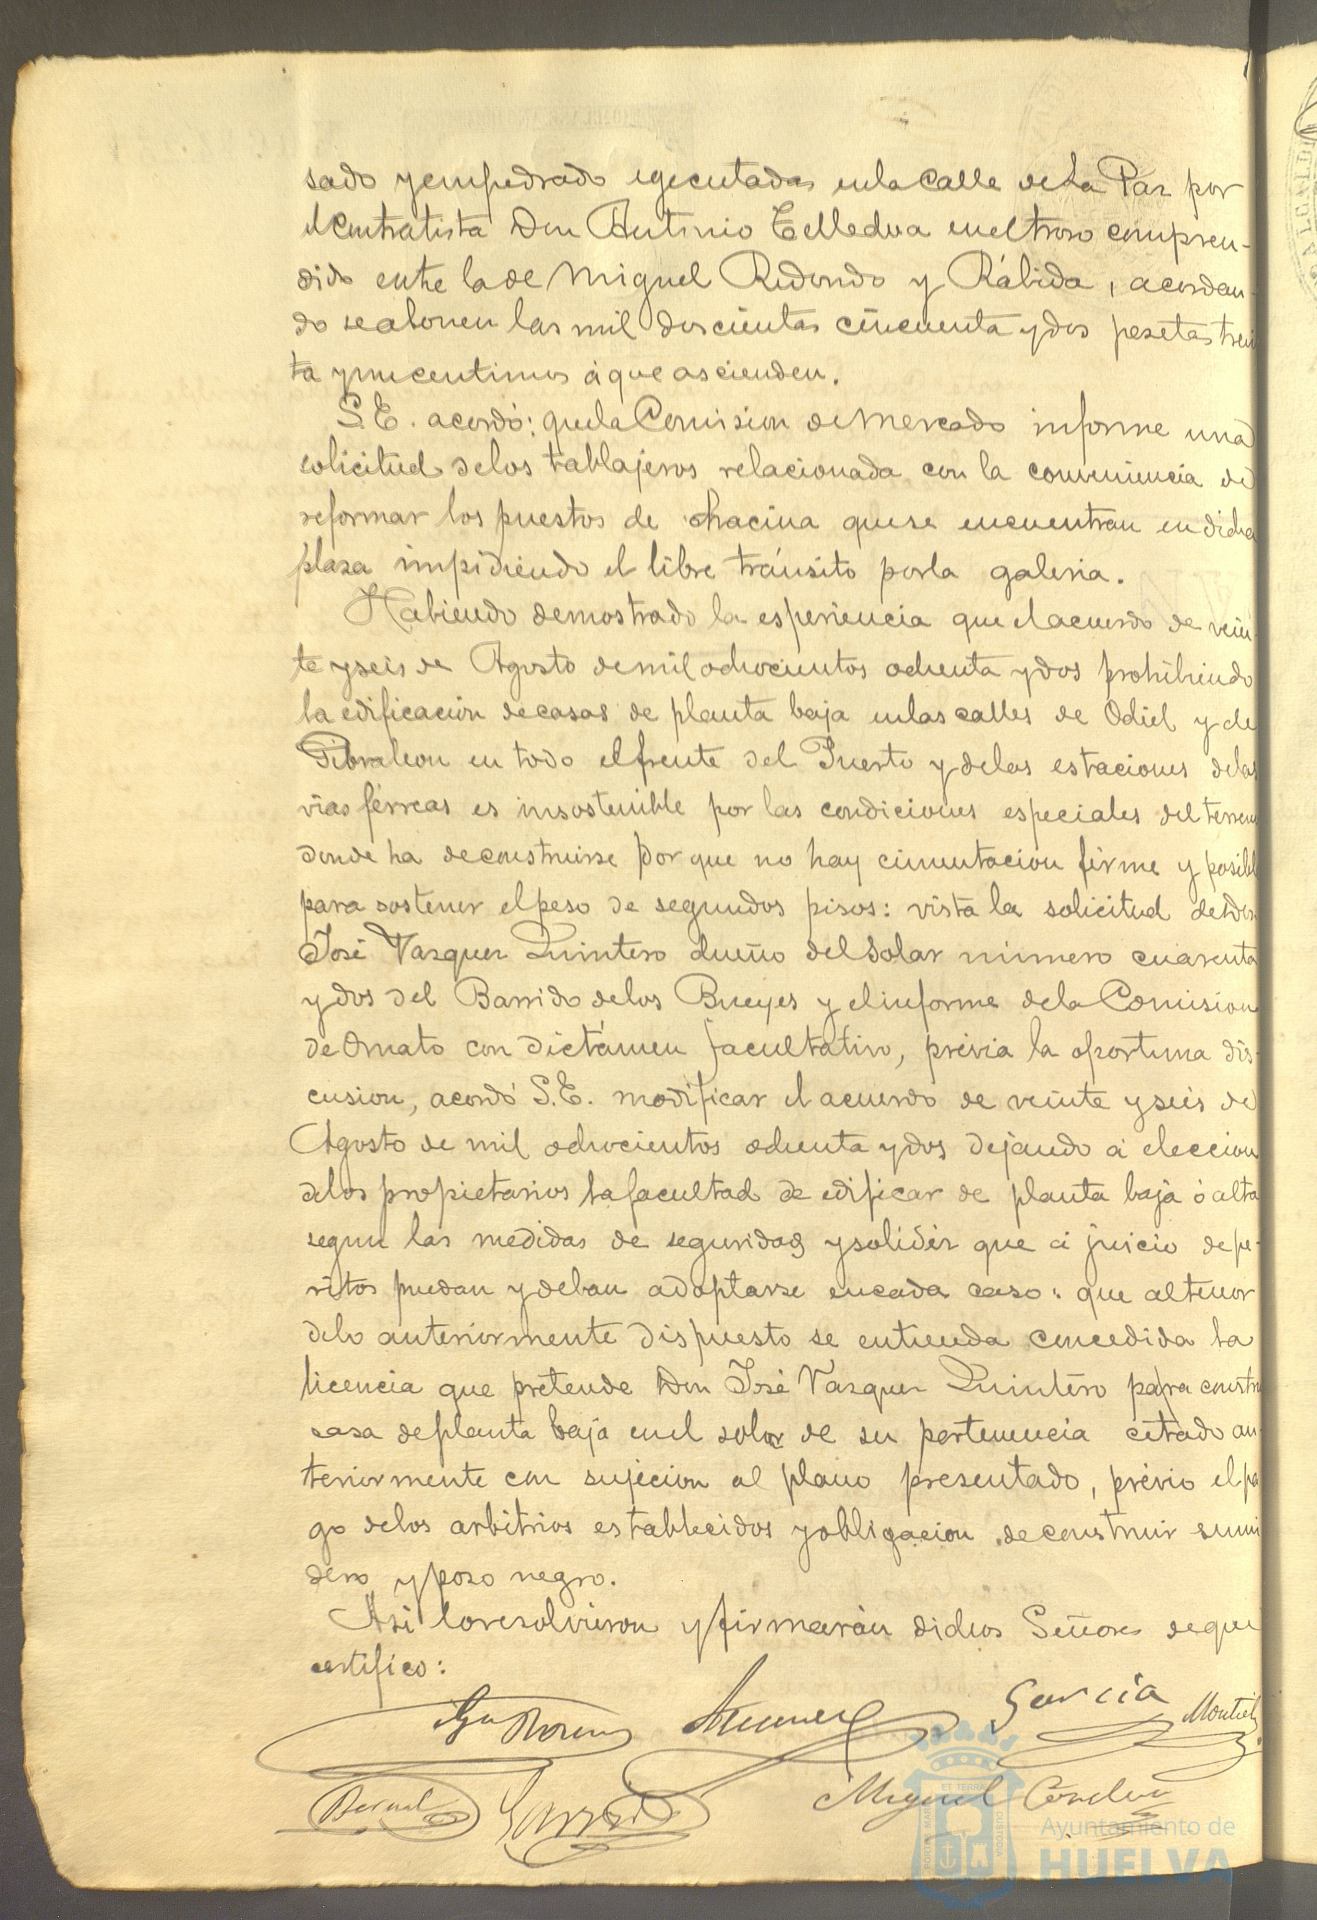 sado y empedrado egecutadas en la calle de La Paz por
el Contratista Don Antonio en el troso compren-
dido entre la de Miguel Redondo y Rábida, acordan-
do se abonen las mil doscientas cincuenta y dos pesetas trein
ta y un centimos á que ascienden.
S.E. acordó: que la Comision de Mercado informe una
solicitud de los tablajeros relacionada con la conveniencia de
reformar los puestos de chacina que se encuentran en dicha
plaza impidiendo el libre tránsito por la galeria.
Habiendo demostrado la esperiencia que el acuerdo de vein-
te y seis de Agosto de mil ochocientos ochenta y dos prohibiendo
la edificacion de casas de planta baja en las calles de Odiel y de
Gibraleon en todo el frente del Puerto y de las estaciones de las
vias férreas es insostenible por las condiciones especiales del terreno
donde ha de construirse por que no hay cimentacion firme y posibl
para sostener el peso de segundos pisos: vista la solicitud de Don
José Vazquez Quintero dueño del Solar número cuarenta
y dos del Barrido de los Bueyes y el informe de la Comision
de Ornato con dictámen facultativo, prévia la oportuna dis-
cusion, acordó S.E. modificar el acuerdo de veinte y seis de
Agosto de mil ochocientos ochenta y dos dejando á eleccion
de los propietarios la facultad de edificar de planta baja ó alta
segun las medidas de seguridad y solidéz que á juicio de pe-
ritos puedan y deban adoptarse en cada caso: que al tenor
de lo anteriormente dispuesto se entienda concedida la
licencia que pretende Don José Vazquez Quintero para constru
casa de planta baja en el solar de su pertenencia citado an-
teriormente con sujecion al plano presentado, prévio el pa
go de los arbitrios establecidos y obligacion de construir sumi
dero y pozo negro.
Asi lo resolvieron y firmarán dichos Señores de que
certifico:
García Montiel
Bernal Garrido Miguel
PORTUS MARIS ET TERRAE CUSTODIA
Ayuntamiento de
HUELVA